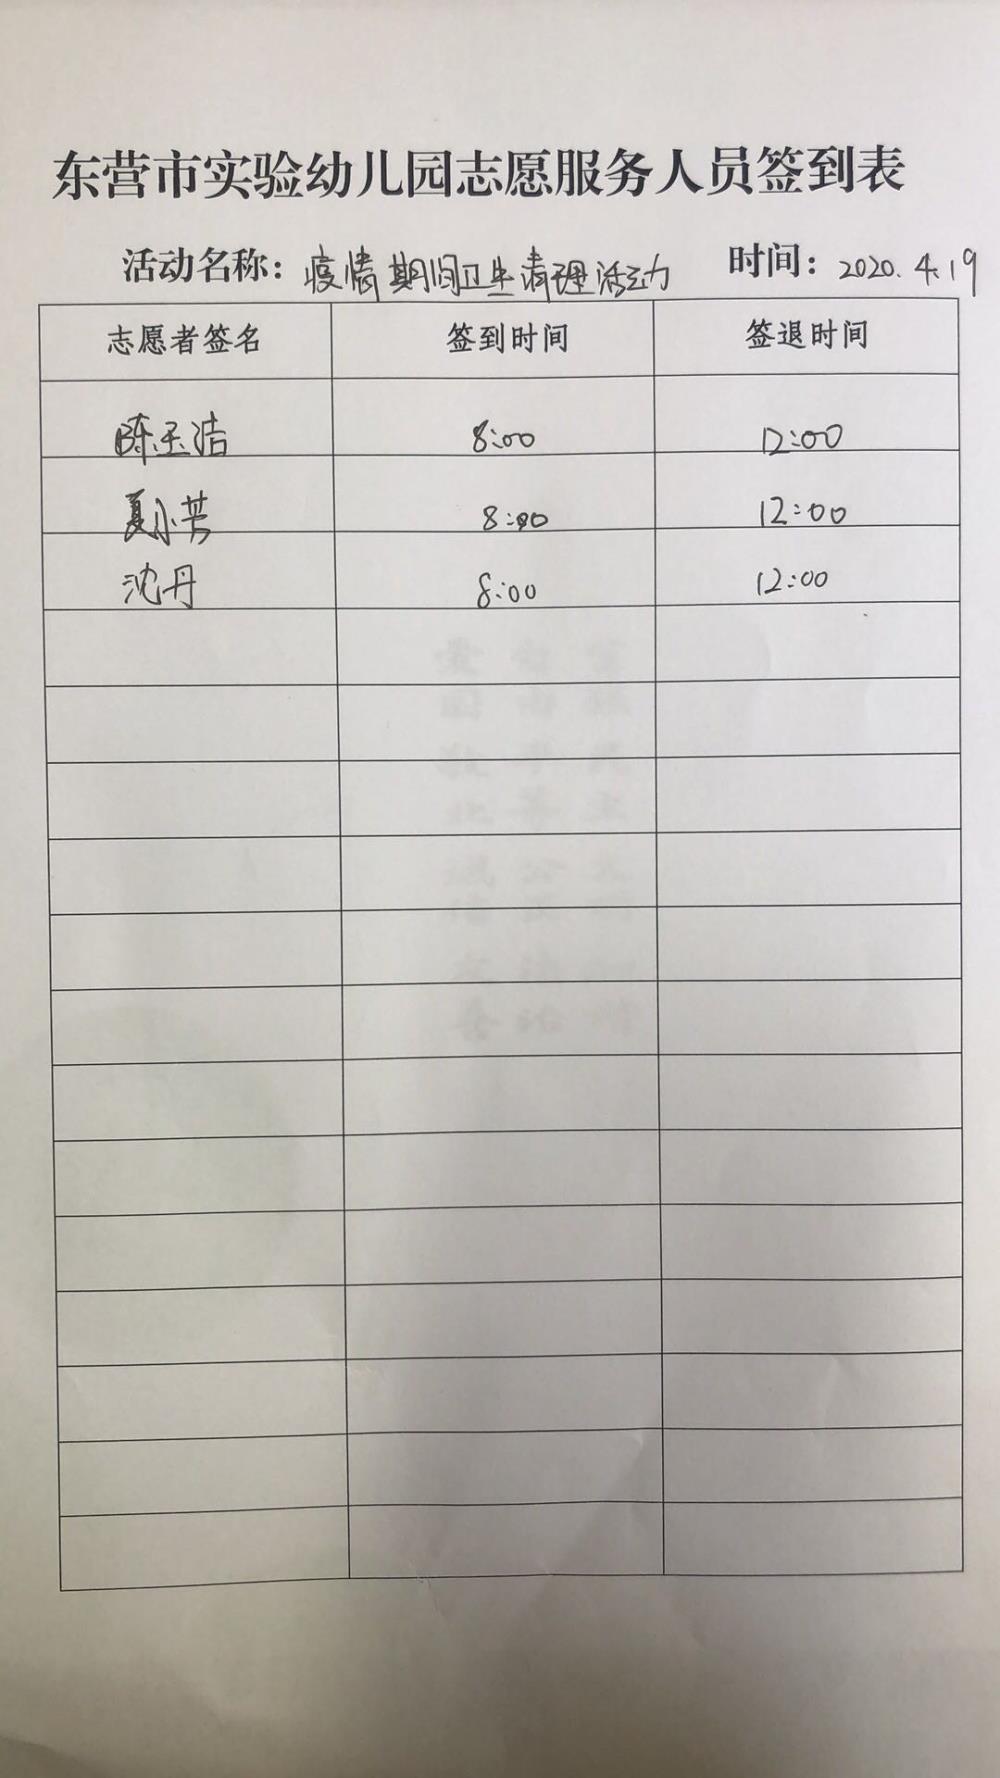 东营市实验幼儿园志愿服务人员签到表
活动名称：疫情期间卫生清理活动 时间：2020.4.19
志愿者签名 签到时间 签退时间
陈玉洁 8:00 12:00
夏小芳 8:00 12:00
沈丹 8:00 12:00